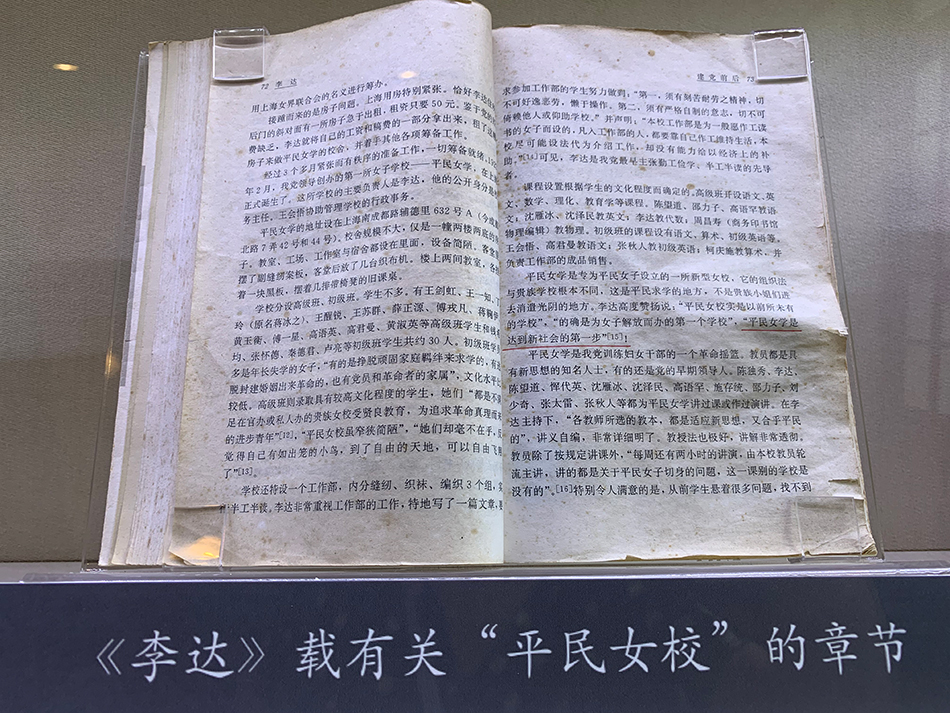 72 李 达
用上海女界联合会的名义进行筹办。
接踵而来的是房子问题。上海用房特别紧张。恰好李达住
后门的斜对面有一所房子急于出租，租资只要50元。鉴于党的
费缺乏，李达就将自己的工资和稿费的一部分拿出来，租了这
房子来做平民女学的校舍、并着手其他各项筹备工作。
经过3个多月紧张而有秩序的准备工作，一切筹备就绪，19
年2月，我党领导创办的第一所女子学校——平民女学，在上
正式诞生了。这所学校的主要负责人是李达，他的公开身分是
务主任。王会悟协助管理学校的行政事务。
平民女学的地址设在上海南成都路辅德里632号A（今成都
北路7弄42号和44号）。校舍规模不大，仅是一幢两楼两底的
子。教室、工场、工作室与宿舍都设在里面，设备简陋，客堂
摆了副缝纫案板，客堂后放了几台织布机。楼上两间教室，各
着一块黑板，摆着几排带椅凳的旧课桌。
学校分设高级班、初级班。学生不多，有王剑虹、王一知、丁
玲（原名蒋冰之）、王醒锐、王苏群、薛正源、傅戎凡、蒋鞠伊
黄玉衡、傅一星、高语英、高君曼、黄淑英等高级班学生和钱希
均、张怀德、秦德君、卢亮等初级班学生共约30人。初级班学
多是年长失学的女子，“有的是挣脱顽固家庭羁绊来求学的，有
脱封建婚姻出来革命的，也有党员和革命者的家属”，文化水平比
较低。高级班则录取具有较高文化程度的学生，她们“都是不满
足在官办或私人办的贵族女校受贤良教育，为追求革命真理而来
的进步青年”[12]，“平民女校虽窄狭简陋”，“她们却毫不在乎，反
觉得自己有如出笼的小鸟，到了自由的天地，可以自由飞翔
了”[13]。
学校还特设一个工作部，内分缝纫、织袜、编织3个组，实
半工半读。李达非常重视工作部的工作，特地写了一篇文章，要
建党前后 73
求参加工作部的学生努力做到，“第一，须有刻苦耐劳之精神，切
不可好逸恶劳，懒于操作。第二，须有严格自制的意志，切不可
倚赖他人或仰助学校。”并声明：“本校工作部是为一般愿作工读
书的女子而设的，凡入工作部的人，都要靠自己作工维持生活，本
校尽可能设法代为介绍工作，却没有能力给以经济上的补
助。”[14]可见，李达是我党最早主张勤工俭学、半工半读的先导
者。
课程设置根据学生的文化程度而确定的。高级班开设语文、英
文、数学、理化、教育学等课程。陈望道、邵力子、高语罕教语
文；沈雁冰、沈泽民教英文；李达教代数；周昌寿（商务印书馆
物理编辑）教物理。初级班的课程设有语文、算术、初级英语等。
王会悟、高君曼教语文；张秋人教初级英语；柯庆施教算术，并
负责工作部的成品销售。
平民女学是专为平民女子设立的一所新型女校，它的组织法
与贵族学校根本不同，这是平民求学的地方，不是贵族小姐们进
去消遣光阴的地方。李达高度赞扬说：“平民女校实是以前所未有
的学校”，“的确是为女子解放而办的第一个学校”，“平民女学是
达到新社会的第一步”[15]！
平民女学是我党训练妇女干部的一个革命摇篮。教员都是具
有新思想的知名人士，有的还是党的早期领导人。陈独秀、李达、
陈望道、恽代英、沈雁冰、沈泽民、高语罕、施存统、邵力子、刘
少奇、张太雷、张秋人等都为平民女学讲过课或作过演讲。在李
达主持下，“各教师所选的教本，都是适应新思想，又合乎平民
的”，讲义自编，非常详细明了。教授法也极好，讲解非常透彻。
教员除了按规定讲课外，“每周还有两小时的讲演，由本校教员轮
流主讲，讲的都是关于平民女子切身的问题，这一课别的学校是
没有的”。[16]特别令人满意的是，从前学生悬着很多问题，找不到
《李达》载有关“平民女校”的章节